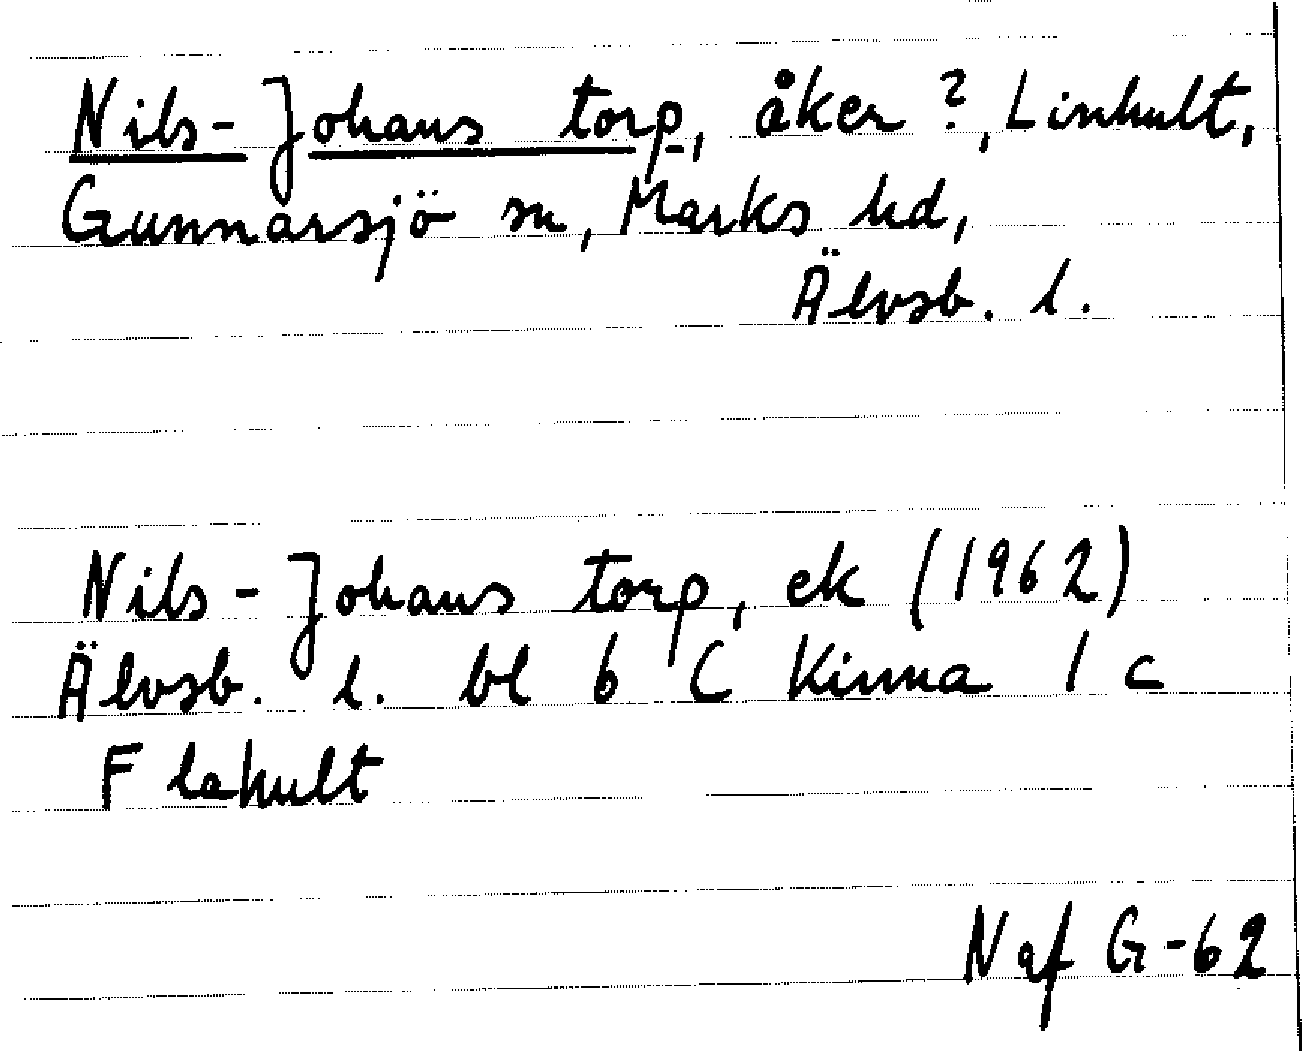 Nils-Johans torp, åker?, Linhult,
Gunnarsjö sn, Marks hd,
Älvsb. l.
Nils-Johans torp, ek (1962)
Älvsb. l. bl 6 C Kinna 1 c
Flahult
Naf G-62